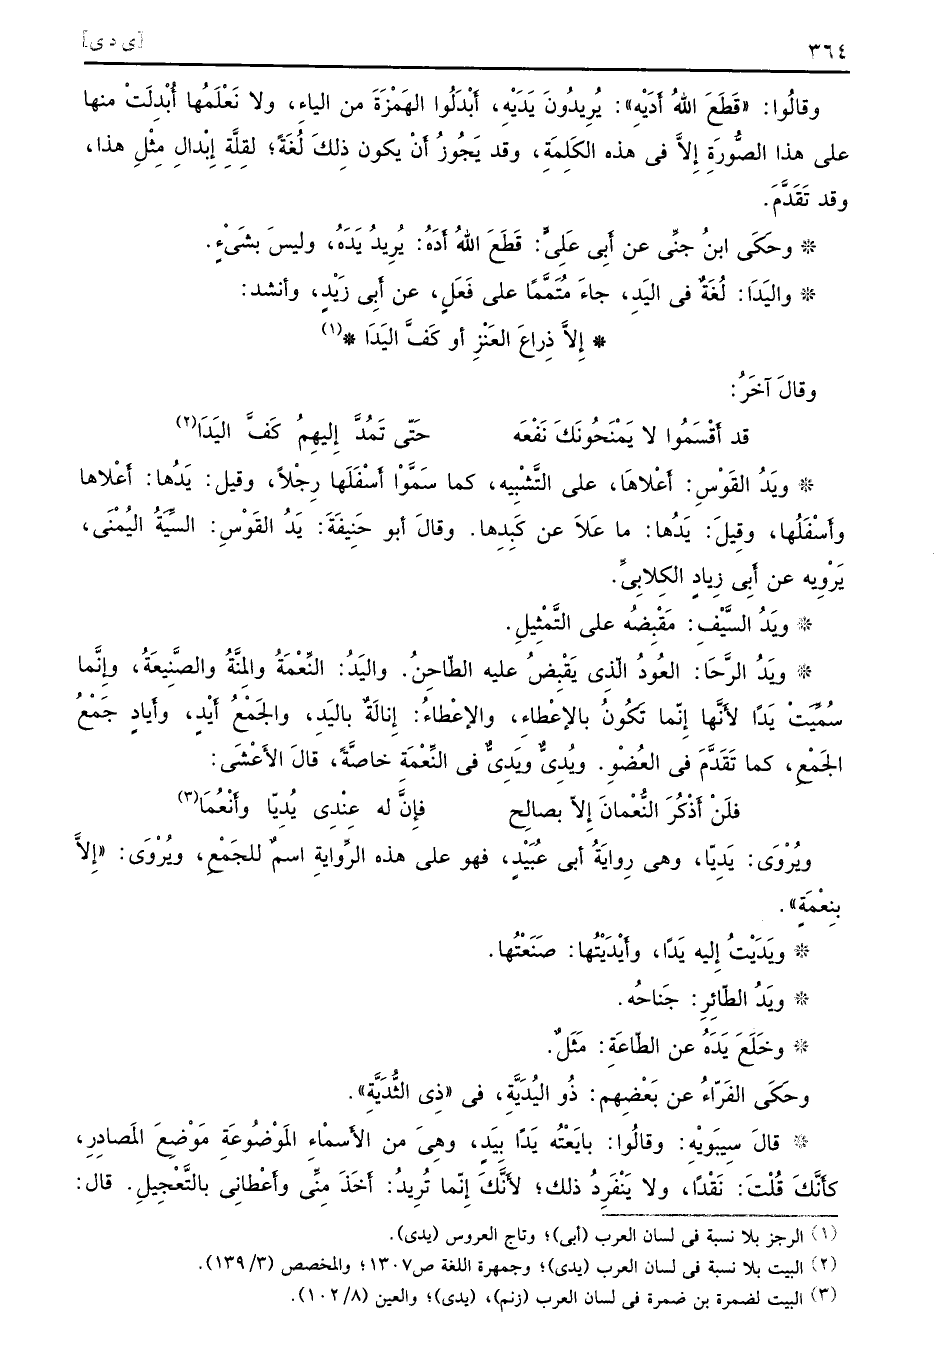 ٣٦٤
[ى د ى]
وقالُوا: «قَطَعَ اللهُ أدَيْه»: يُرِيدُونَ يَدَيْه، أبْدَلُوا الهَمْزَةَ من الياء، ولا نَعْلَمُها أُبْدِلَتْ منها
على هذا الصُّورَةِ إلاَّ فى هذه الكَلِمَةِ، وقد يَجُوزُ أنْ يكون ذلِكَ لُغَةً؛ لقِلَّةِ إبْدالِ مِثْلِ هذا،
وقد تَقَدَّمَ.
* وحَكَى ابنُ جنِّى عن أَبِى عَلِىٍّ: قَطَعَ اللهُ أدَهُ: يُرِيدُ يَدَهُ، وليسَ بشَىْءٍ.
* واليَدَا: لُغَةٌ فى اليَدِ، جاءَ مُتَمَّمًا على فَعَلٍ، عن أَبِى زَيْدٍ، وأنشد:
* إلاَّ ذِراعَ العَنْزِ أو كَفَّ اليَدَا *(١)
وقالَ آخَرُ:
قد أقْسَمُوا لا يَمْنَحُونَكَ نَفْعَه حَتّى تَمُدَّ إليهِمُ كَفَّ اليَدَا(٢)
* ويَدُ القَوْسِ: أعْلاهَا، على التَّشْبِيه، كما سَمَّوْا أسْفَلَها رِجْلاً، وقيل: يَدُها: أعْلاها
وأسْفَلُها، وقِيلَ: يَدُها: ما عَلاَ عن كَبِدِها. وقالَ أبو حَنِيفَةَ: يَدُ القَوْسِ: السِّيَةُ اليُمْنَى،
يَرْوِيه عن أَبِى زِيادٍ الكِلابِىِّ.
* ويَدُ السَّيْفِ: مَقْبِضُه على التَّمْثِيلِ.
* ويَدُ الرَّحَا: العُودُ الَّذِى يَقْبِضُ عليه الطّاحِنُ. واليَدُ: النِّعْمَةُ والمِنَّةُ والصَّنِيعَةُ، وإنَّما
سُمِّيَتْ يَدًا لأنَّها إنّما تَكُونُ بالإعْطاءِ، والإعْطاءُ: إنالَةٌ باليَدِ، والجَمْعُ أيْدٍ، وأيادٍ جَمْعُ
الجَمْعِ، كما تَقَدَّمَ فى العُضْوِ. ويُدِىٌّ ويَدِىٌّ فى النِّعْمَةِ خاصَّةً، قالَ الأعْشَى:
فلَنْ أذْكُرَ النُّعْمانَ إلاّ بصالِحٍ فإنَّ له عِنْدِى يُدِيّا وأنْعُمَا(٣)
ويُرْوَى: يَدِيّا، وهى رِوايَةُ أبى عُبَيْدٍ، فهو على هذه الرِّوايةِ اسمٌ للجَمْعِ، ويُرْوَى: «إلاَّ
بنِعْمَةٍ».
* ويَدَيْتُ إليه يَدًا، وأيْدَيْتُها: صَنَعْتُها.
* ويَدُ الطّائِرِ: جَناحُه.
* وخَلَعَ يَدَهُ عن الطّاعَةِ: مَثَلٌ.
وحَكَى الفَرّاءُ عن بَعْضِهم: ذُو اليُدَيَّةِ، فى «ذِى الثُّدَيَّة».
* قالَ سِيبَوَيْهِ: وقالُوا: بايَعْتُه يَدًا بِيَدٍ، وهىَ من الأسْماءِ المَوْضُوعَةِ مَوْضِعَ المَصادِرِ،
كأنَّكَ قُلْتَ: نَقْدًا، ولا يَنْفَرِدُ ذلك؛ لأنَّكَ إنّما تُرِيدُ: أخَذَ مِنِّى وأعْطانِى بالتَّعْجِيلِ. قال:
(١) الرجز بلا نسبة فى لسان العرب (أبى)؛ وتاج العروس (يدى).
(٢) البيت بلا نسبة فى لسان العرب (يدى)؛ وجمهرة اللغة ص١٣٠٧؛ والمخصص (١٣٩/٣).
(٣) البيت لضمرة بن ضمرة فى لسان العرب (زنم)، (يدى)؛ والعين (١٠٢/٨).